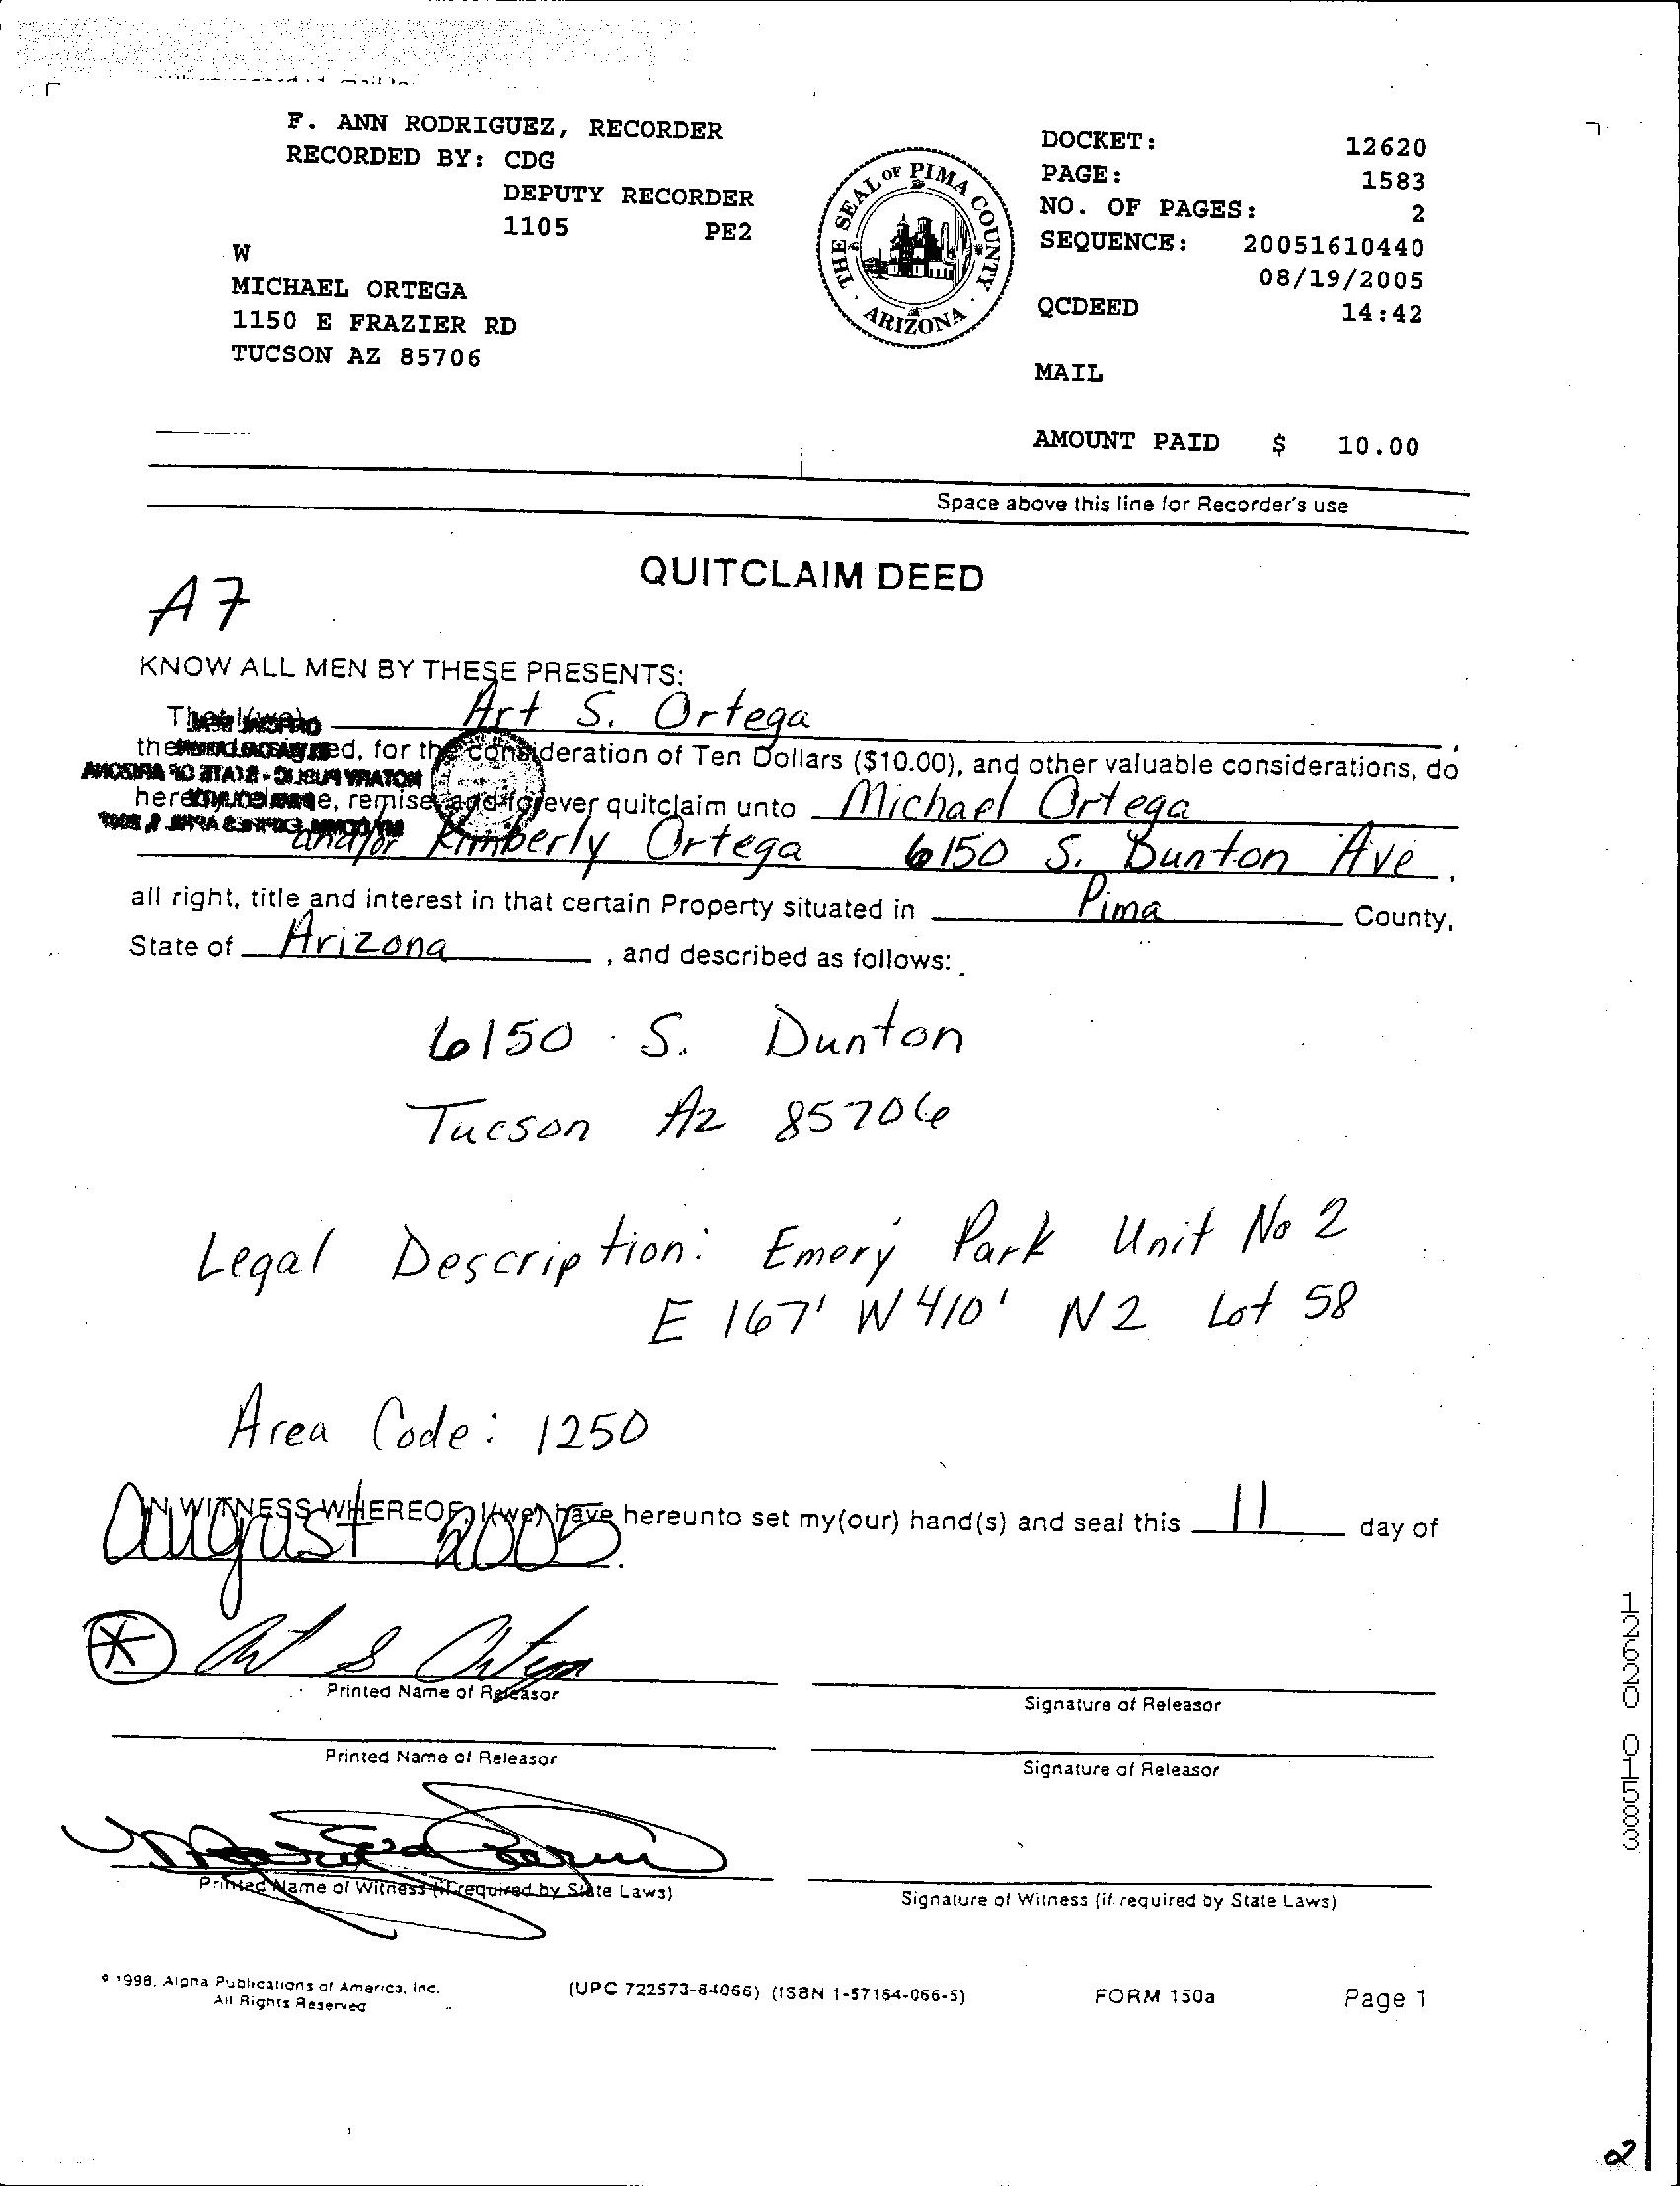 F. ANN RODRIGUEZ, RECORDER
RECORDED BY: CDG
DEPUTY RECORDER
1105 PE2
W
MICHAEL ORTEGA
1150 E FRAZIER RD
TUCSON AZ 85706
THE SEAL OF PIMA COUNTY
ARIZONA
DOCKET: 12620
PAGE: 1583
NO. OF PAGES: 2
SEQUENCE: 20051610440
08/19/2005
QCDEED 14:42
MAIL
AMOUNT PAID $ 10.00
Space above this line for Recorder's use
QUITCLAIM DEED
A7
KNOW ALL MEN BY THESE PRESENTS:
Art S. Ortega
for the consideration of Ten Dollars ($10.00), and other valuable considerations, do
remise and forever quitclaim unto Michael Ortega
and/or Kimberly Ortega 6150 S. Dunton Ave.
all right, title and interest in that certain Property situated in Pima County,
State of Arizona, and described as follows:
6150 S. Dunton
Tucson Az 85706
Legal Description: Emery Park Unit No 2
E 167' W 410' N2 Lot 58
Area Code: 1250
IN WITNESS WHEREOF, I(we) have hereunto set my(our) hand(s) and seal this 11 day of
August 2005.
Art S Ortega
Printed Name of Releasor Signature of Releasor
Printed Name of Releasor Signature of Releasor
Printed Name of Witness (if required by State Laws) Signature of Witness (if required by State Laws)
© 1998, Alpha Publications of America, Inc. (UPC 722573-84066) (ISBN 1-57164-066-5) FORM 150a Page 1
All Rights Reserved
12620 01583
2